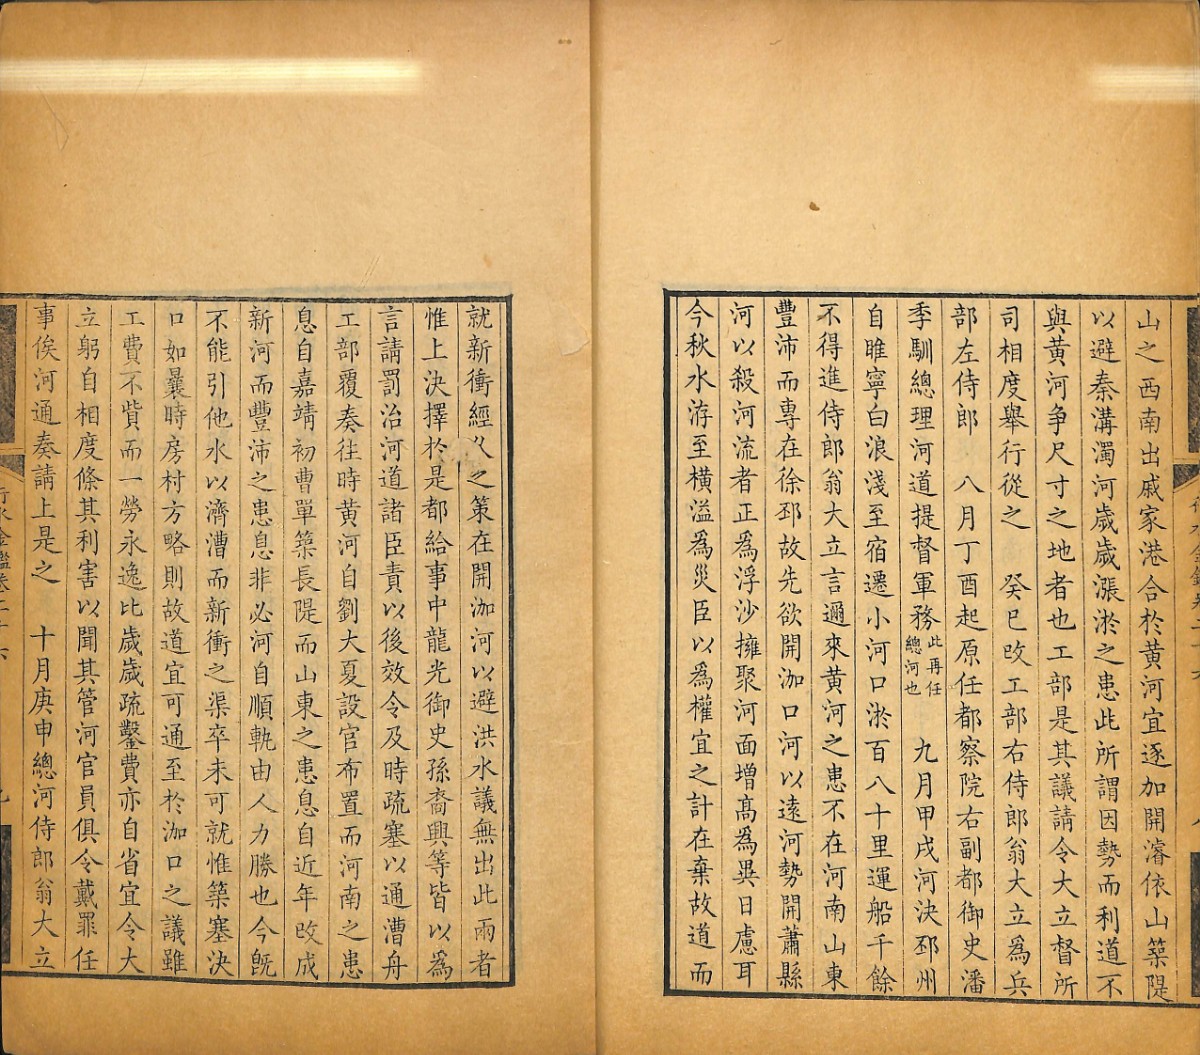 山之西南出戚家港合於黄河宜逐加開濬依山築隄
以避秦溝濁河歳歳漲淤之患此所謂因勢而利道不
與黄河争尺寸之地者也工部是其議請令大立督所
司相度舉行從之　癸巳改工部右侍郎翁大立為兵
部左侍郎　八月丁酉起原任都察院右副都御史潘
季馴總理河道提督軍務此再任總河也　九月甲戌河決邳州
自睢寧白浪淺至宿遷小河口淤百八十里運船千餘
不得進侍郎翁大立言邇來黄河之患不在河南山東
豐沛而專在徐邳故先欲開泇口河以遠河勢開蕭縣
河以殺河流者正為浮沙擁聚河面增髙為異日慮耳
今秋水洊至橫溢為災臣以為權宜之計在棄故道而
就新衝經久之策在開泇河以避洪水議無出此兩者
惟上決擇於是都給事中龍光御史孫裔興等皆以為
言請罰治河道諸臣責以後效令及時疏塞以通漕舟
工部覆奏往時黄河自劉大夏設官布置而河南之患
息自嘉靖初曹單築長隄而山東之患息自近年改成
新河而豐沛之患息非必河自順軌由人力勝也今既
不能引他水以濟漕而新衝之渠卒未可就惟築塞決
口如曩時房村方略則故道宜可通至於泇口之議雖
工費不貲而一勞永逸比歳歳疏鑿費亦自省宜令大
立躬自相度條其利害以聞其管河官員俱令戴罪任
事俟河通奏請上是之　十月庚申總河侍郎翁大立
行水金鑑卷二十六
九